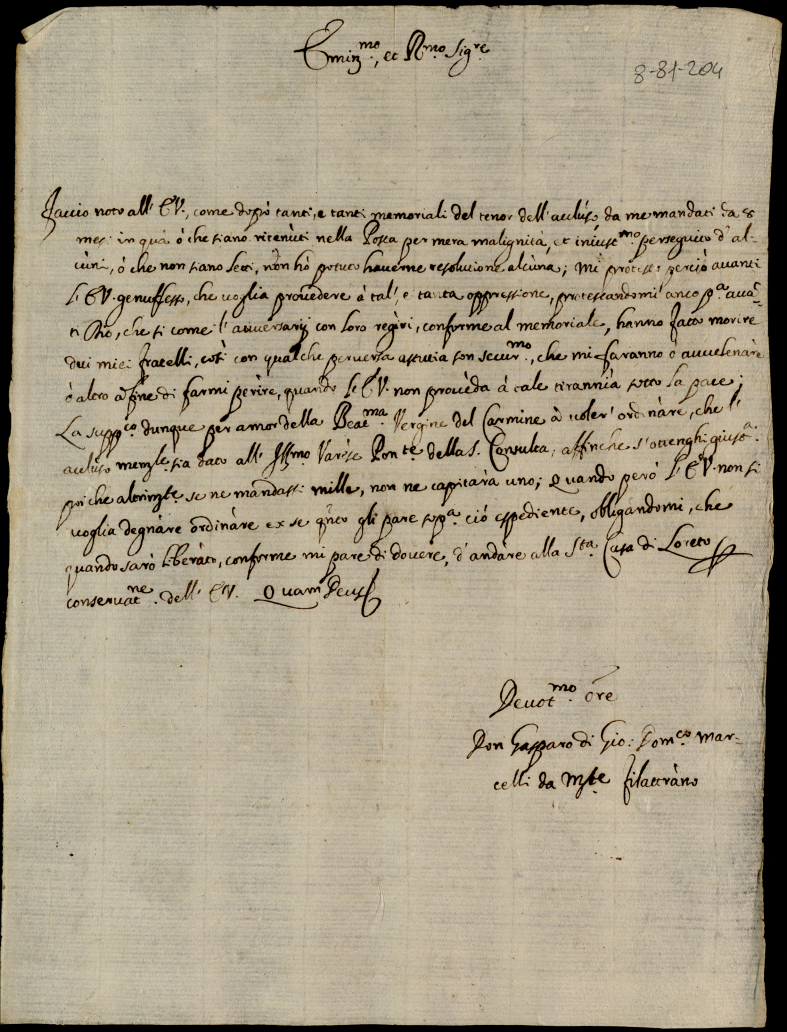 Emin.mo, et R.mo Sig.re
8-81-204
Faccio noto all' E.V., come doppò tanti, e tanti memoriali del tenor dell'accluso da me mandati da 8
mesi in quà ò che siano ritenùti nella Posta per mera malignità, et iniust.mo perseguito d'al-
cùni, ò che non siano letti, non hò potuto haverne resolutione alcùna; mi protesto perciò avanti
l'E.V. genuflesso, che voglia provedere à tal', e tanta oppressione, protestandomi anco p.a avã-
ti Dio, che si come l'avversarij con loro regiri, conforme al memoriale, hanno fatto morire
dui miei fratelli, così con qualche perversa astutia son secur.mo, che mi faranno o avvelenàre
ò altro à fine di farmi perìre, quando l'E.V. non provèda à tale tirannìa sotto la pace;
La supp.co dunque per amor della Beat.ma Vergine del Carmine à voler' ordinàre, che l'
accluso memẽle sia dato all' Ill.mo Varèse Pon.te della S. Consulta, affinche s'ottenghi giust.a
poiche altrimẽte se ne mandassi mille, non ne capitarà uno; Quando però l'E.V. non si
voglia degnàre ordinàre ex se q̃nto gli pare sop.a ciò espediente, obligandomi, che
quando sarò liberàto, conforme mi pare di dovere, d'andàre alla S.ta Casa di Loreto
conservat.ne dell' E.V. Quam Deus
Devot.mo Ore
Don Gasparo di Gio: Dom.co Mar-
celli da Mõte Filattràno